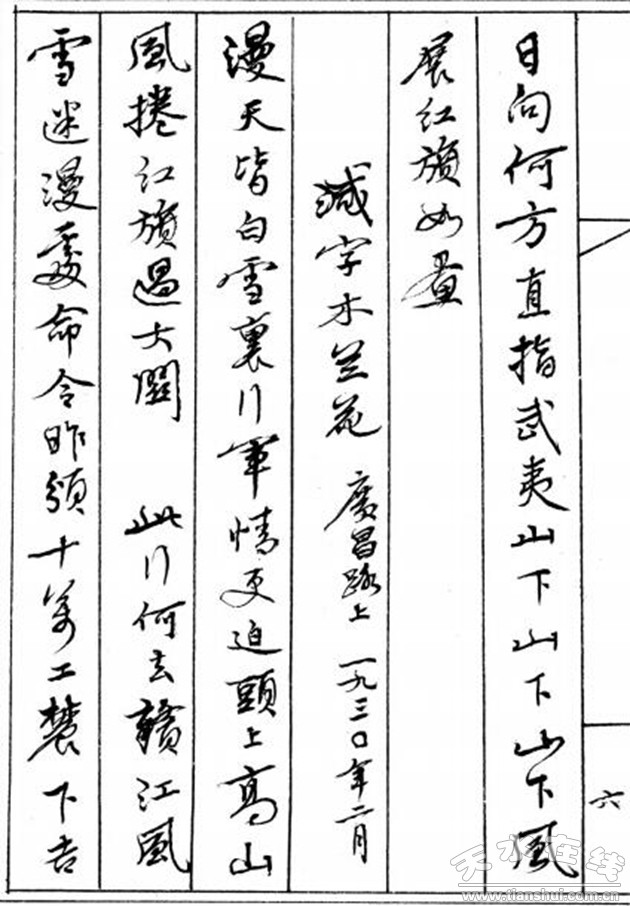 六
日向何方直指武夷山下山下山下風
展红旗如畫
減字木兰花 廣昌路上 一九三〇年二月
漫天皆白雪裏行軍情更迫頭上高山
風捲红旗過大關 此行何去贛江風
雪迷漫處命令昨頒十萬工農下吉
天水在线
www.tianshui.com.cn